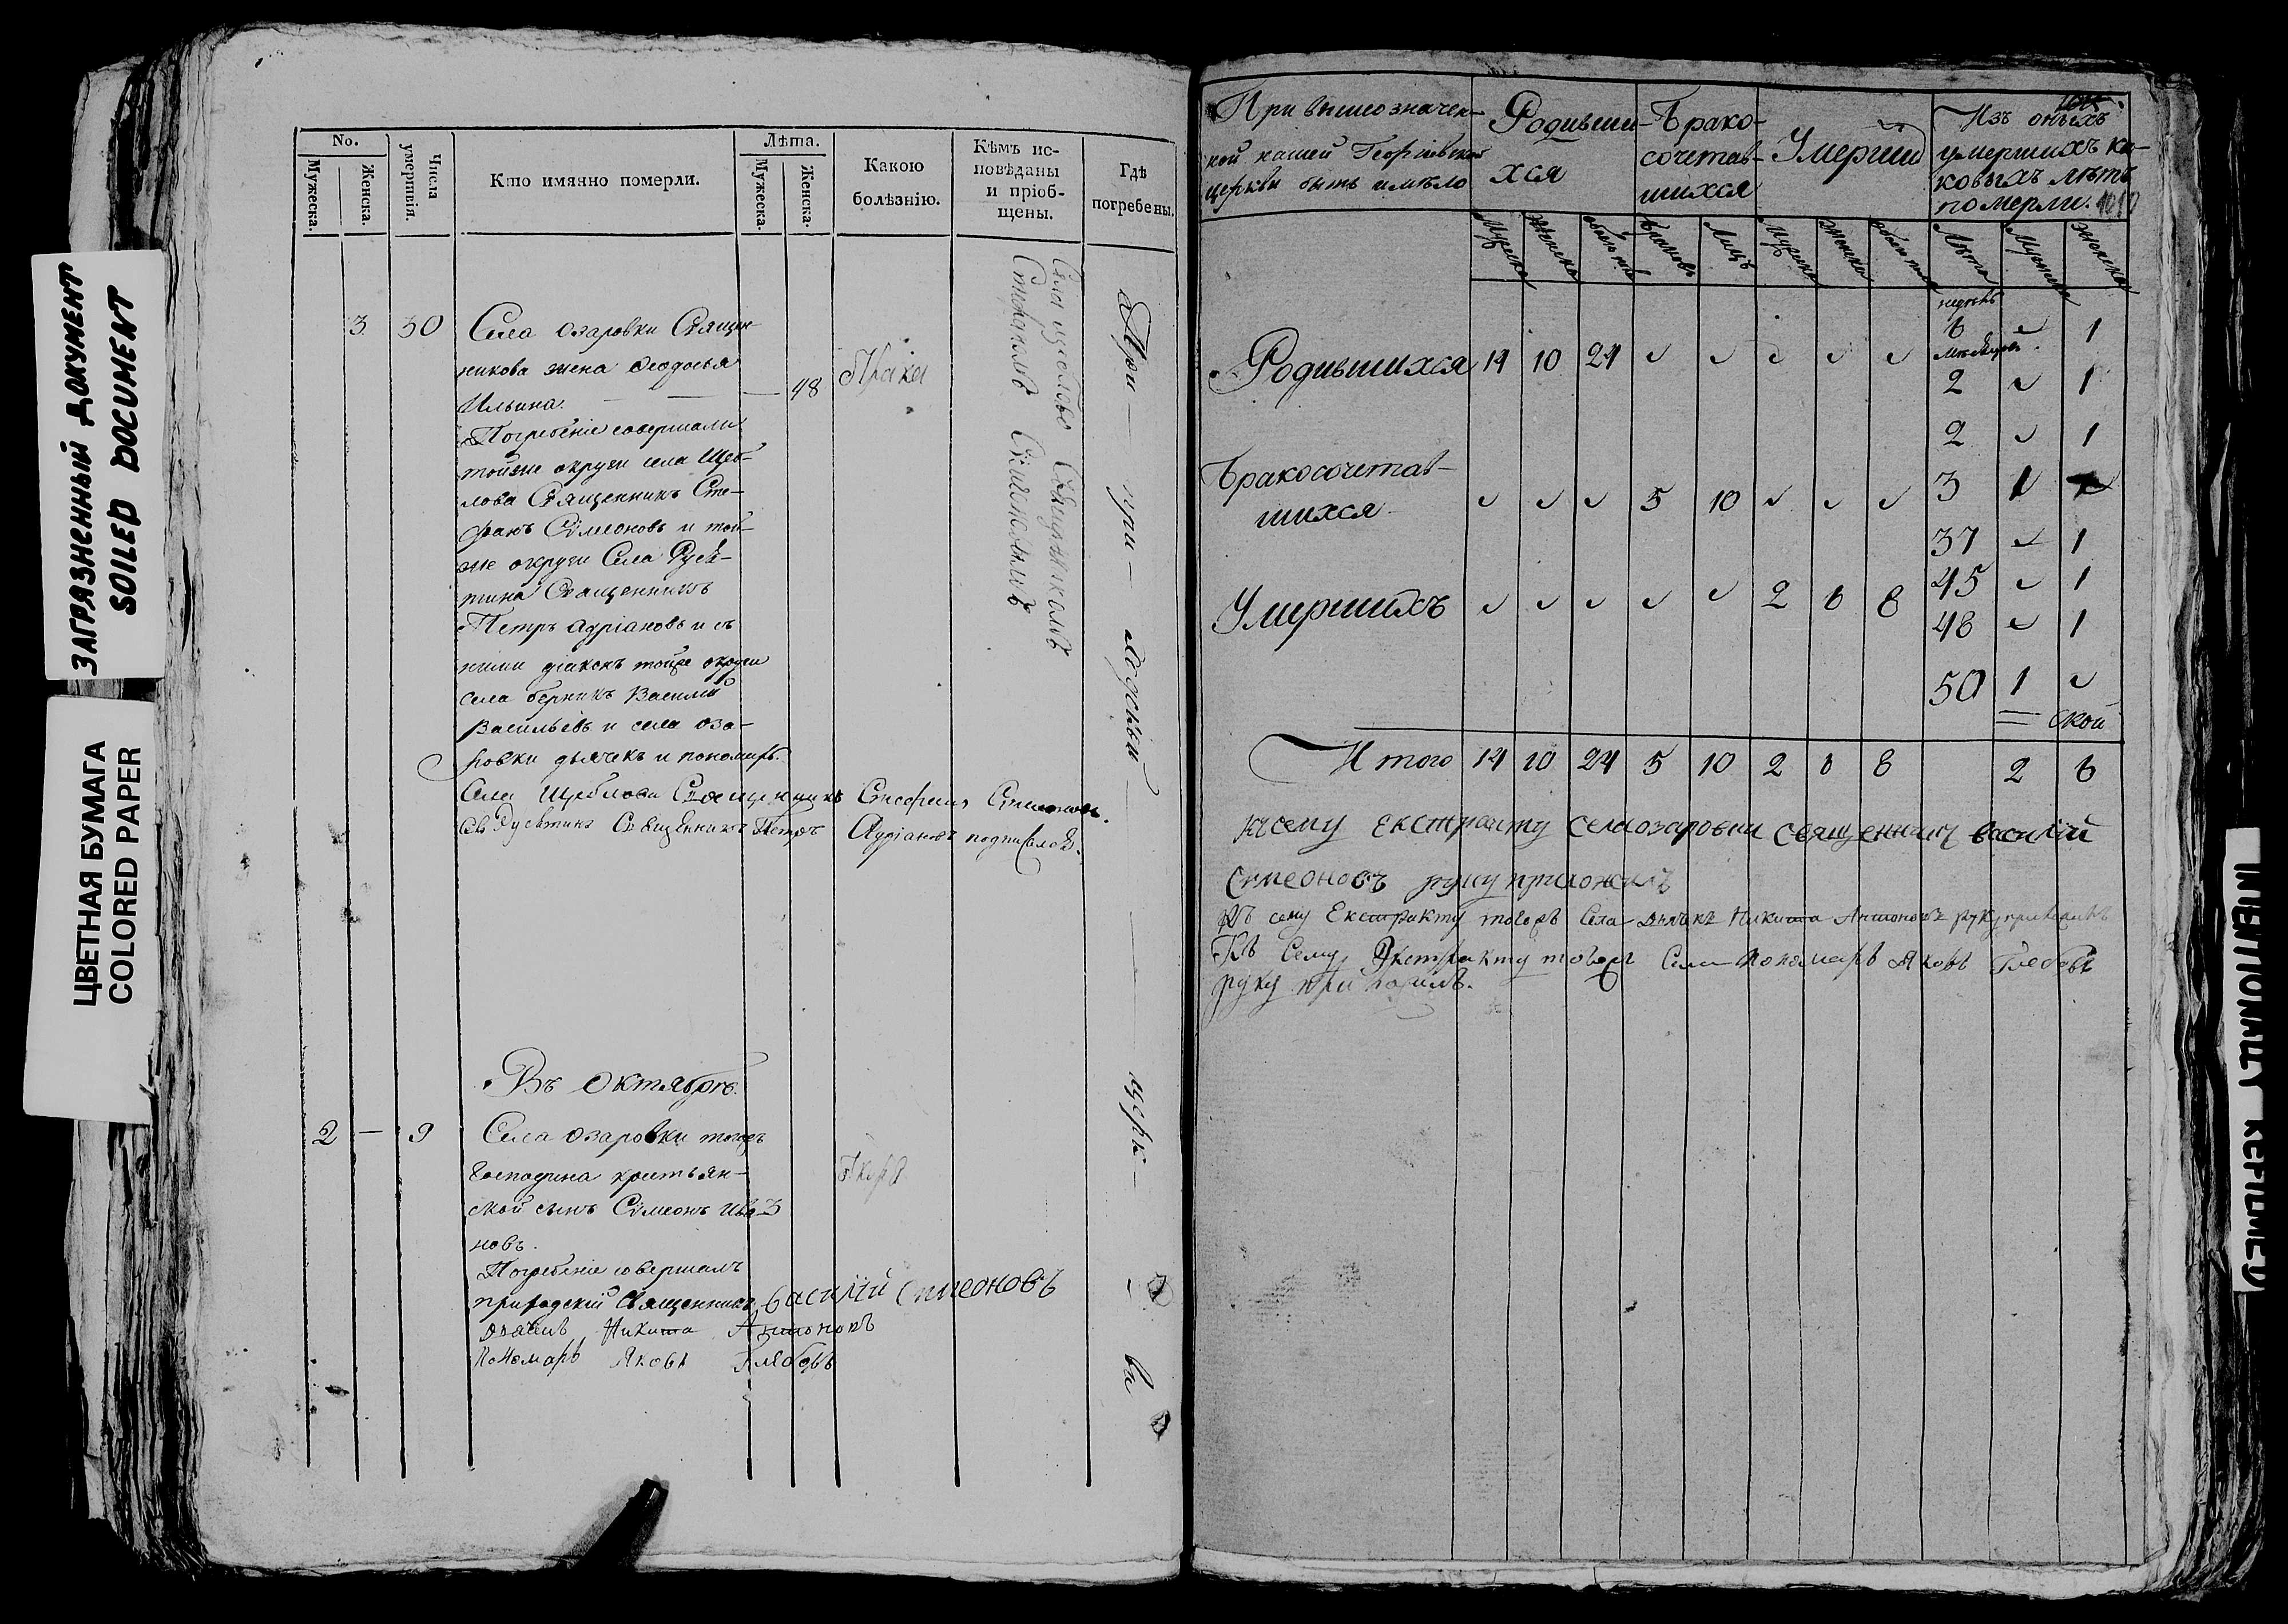 ЗАГРЯЗНЕННЫЙ ДОКУМЕНТ
SOILED DOCUMENT
ЦВЕТНАЯ БУМАГА
COLORED PAPER
No.
Мужеска.
Женска.
Числа умертвія.
Кто имянно померли.
Лѣта.
Мужеска.
Женска.
Какою болѣзнію.
Кѣмъ исповѣданы и пріобщены.
Гдѣ погребены.
3 30 Села Озаровки Священ-
никова жена Ѳеодосья
Ильина. — — — 48
Погребеніе совершали
тойже округи села Щеб-
лова Священникъ Сте-
фанъ Сѵмеоновъ и той
же округи Села
Священникъ
Петръ Адріановъ и съ
ними діаконъ тойже округи
села Берникъ Василій
Васильевъ и села Оза-
ровки дьячекъ и пономарь.
Села Щеблова Священникъ Стефанъ Симеоновъ.
Священникъ Петръ Адріановъ подписался.
Священникомъ
Стефаномъ Сѵмеоновымъ
При — при — ской — церк — ви
Въ Октябрѣ.
2 — 9 Села Озаровки тогожъ
Господина крестьян-
ской сынъ Сѵмеонъ Ива- 3
новъ.
Погребеніе совершалъ
приходскій Священникъ Василій Симеоновъ
дьячекъ Никита Антоновъ
Пономарь Яковъ Глебовъ
При вышеозначен-
ной нашей Георгіевской
церкви быть имѣло
Родивши-
хся
Брако-
сочетав-
шихся
Умерши
Изъ оныхъ
умершихъ ка-
ковыхъ лѣтъ
померли.
1010
Мужеска
Женска
обоего пола
Браковъ
Лицъ
Мужеска
Женска
обоего пола
Лѣта
Мужеска
Женска
Родившихся 14 10 24
недель
6 1
мѣсяцовъ
2 1
2 1
Бракосочетав-
шихся 5 10
3 1
37 1
Умершихъ 2 6 8
45 1
48 1
50 1
Итого 14 10 24 5 10 2 6 8 2 6
Къ сему екстракту села Озаровки священникъ Василій
Симеоновъ руку приложилъ
Къ сему Екстракту тогожъ Села дьячекъ Никита Антоновъ руку приложилъ
Къ Сему Экстракту тогожъ Села Пономарь Яковъ Глебовъ
руку приложилъ.
INTENTIONALLY REFILMED